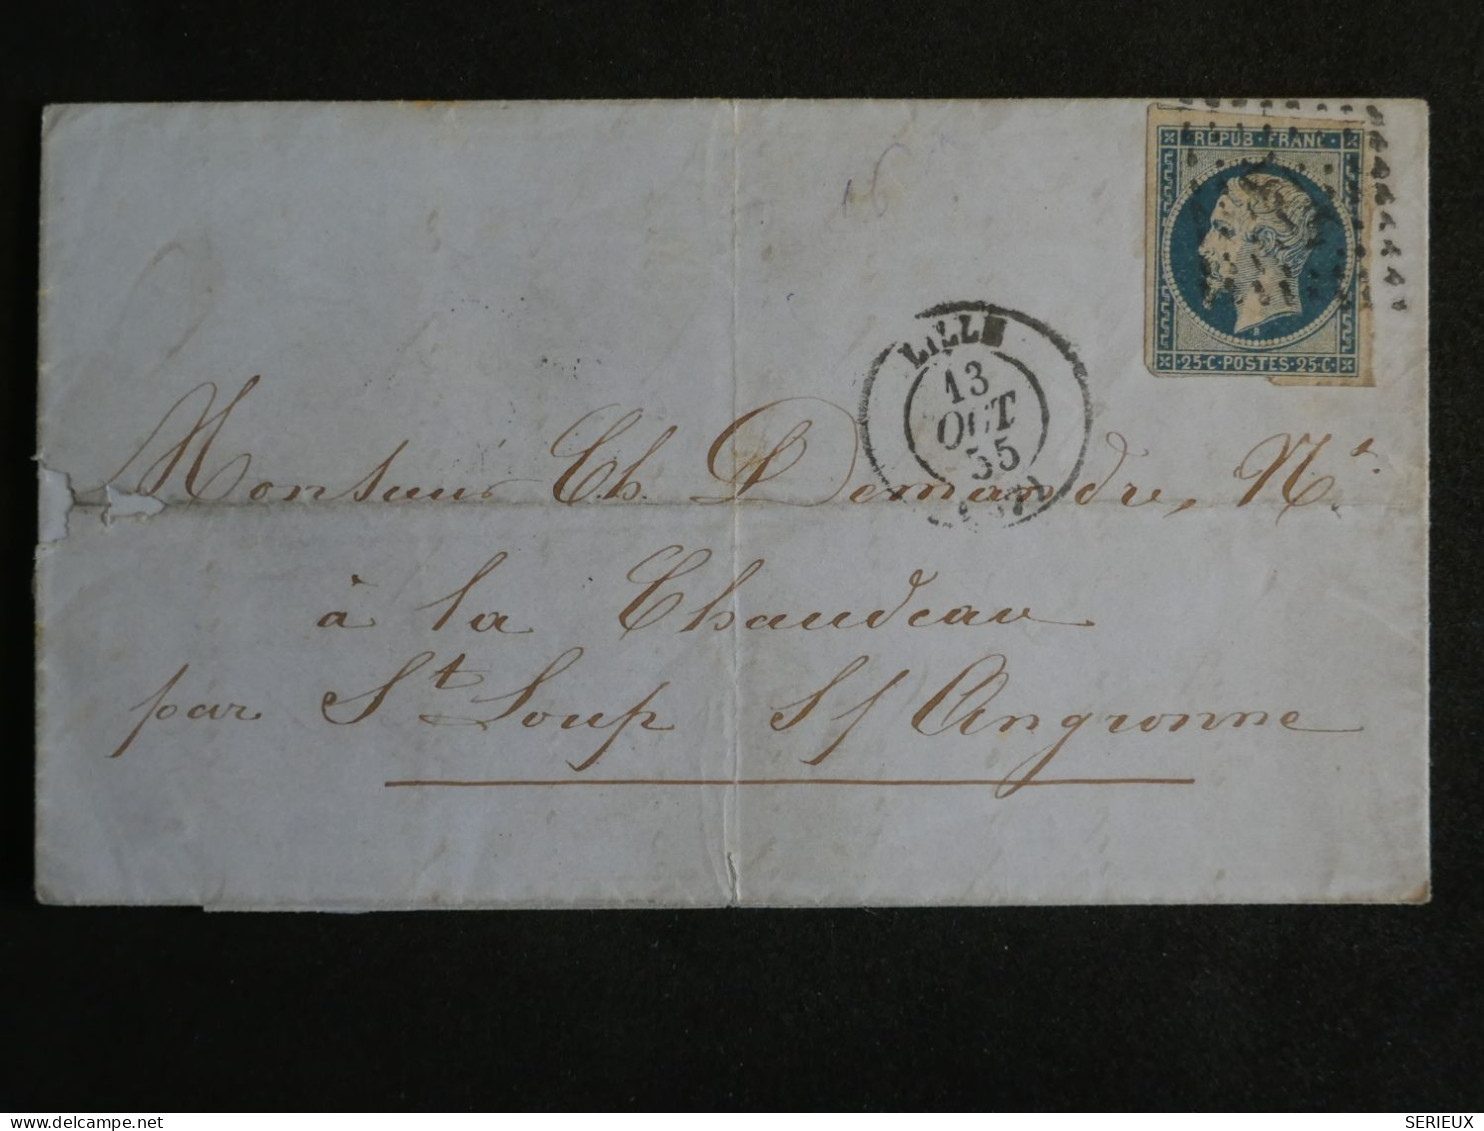 REPUB·FRANC·
25·C·POSTES·25·C·
LILLE
13
OCT
55
Monsieur Ch. Demandre, Nt.
à la Chaudeau
par St Loup S/ Angronne
delcampe.net
SERIEUX